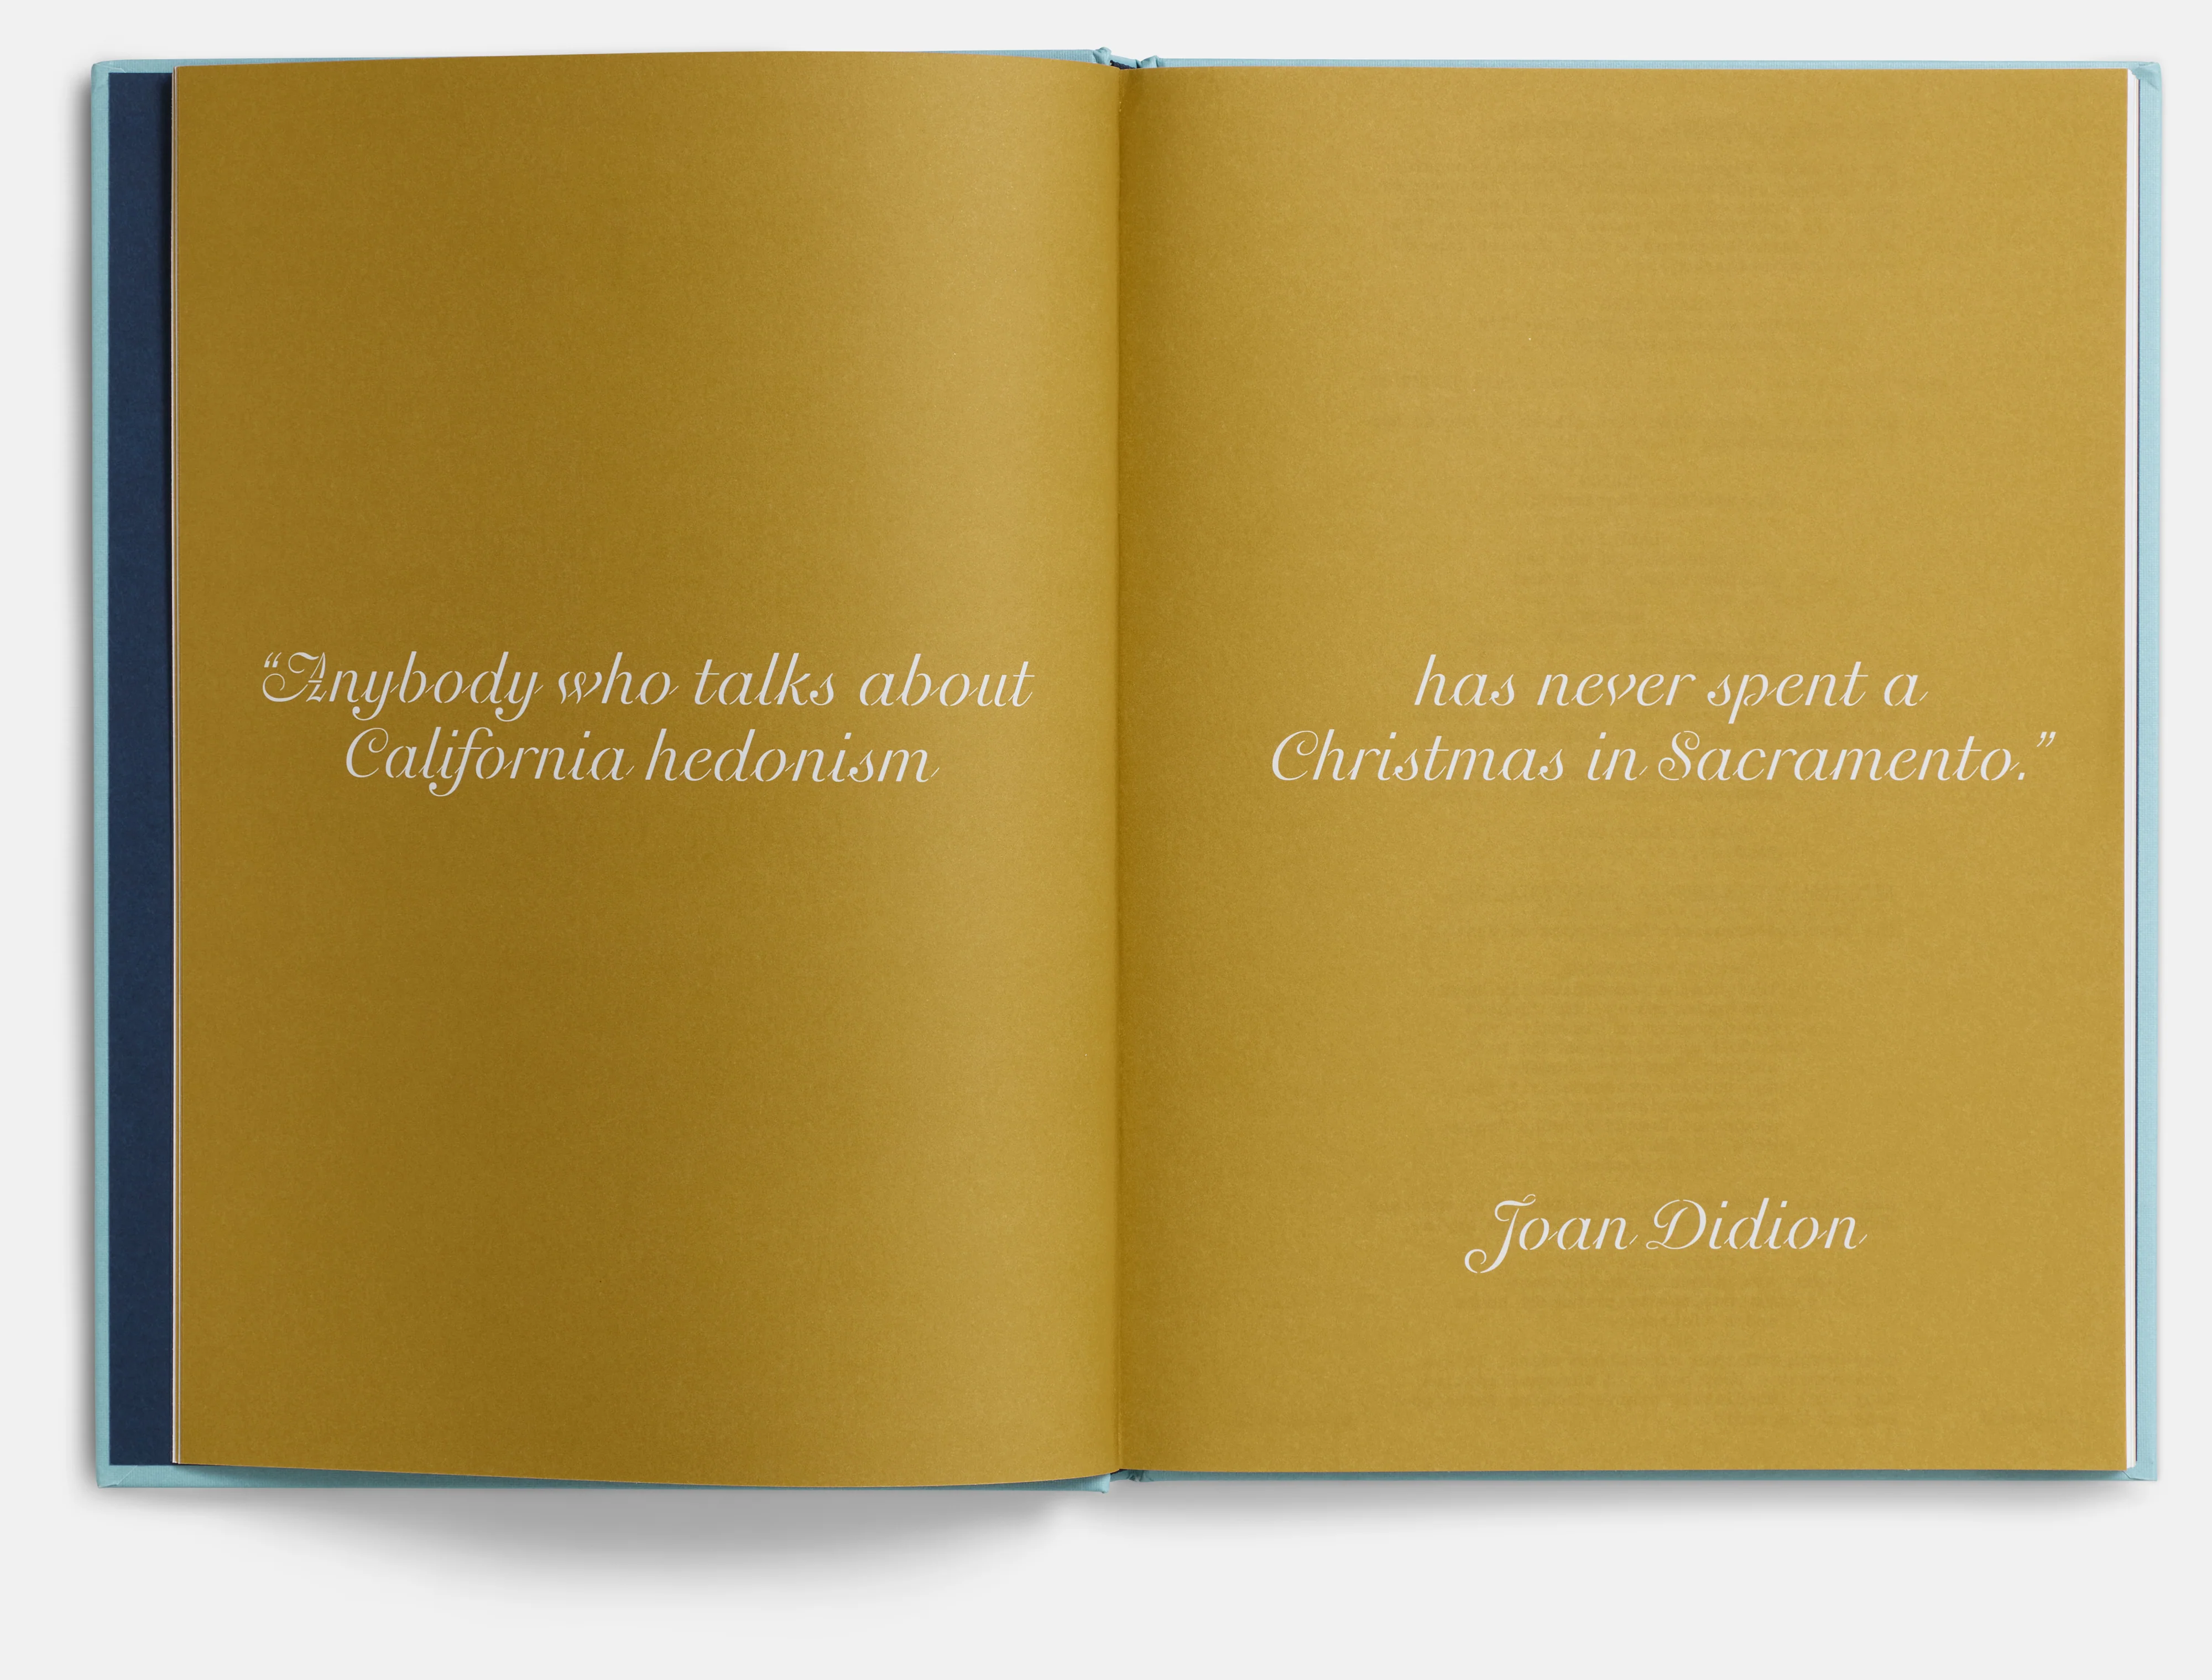 “Anybody who talks about
California hedonism
has never spent a
Christmas in Sacramento.”
Joan Didion